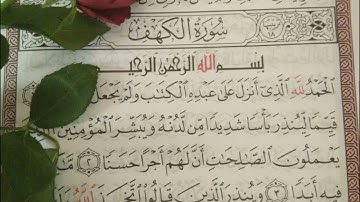 سُورَةُ ٱلۡكَهۡفِ
بِسۡمِ ٱللَّهِ ٱلرَّحۡمَٰنِ ٱلرَّحِيمِ
ٱلۡحَمۡدُ لِلَّهِ ٱلَّذِيٓ أَنزَلَ عَلَىٰ عَبۡدِهِ ٱلۡكِتَٰبَ وَلَمۡ يَجۡعَل
قَيِّمٗا لِّيُنذِرَ بَأۡسٗا شَدِيدٗا مِّن لَّدُنۡهُ وَيُبَشِّرَ ٱلۡمُؤۡمِنِينَ
يَعۡمَلُونَ ٱلصَّٰلِحَٰتِ أَنَّ لَهُمۡ أَجۡرًا حَسَنٗا ٢
فِيهِ أَبَدٗا ٣ وَيُنذِرَ ٱلَّذِينَ قَالُواْ ٱتَّخَذَ ٱللَّهُ